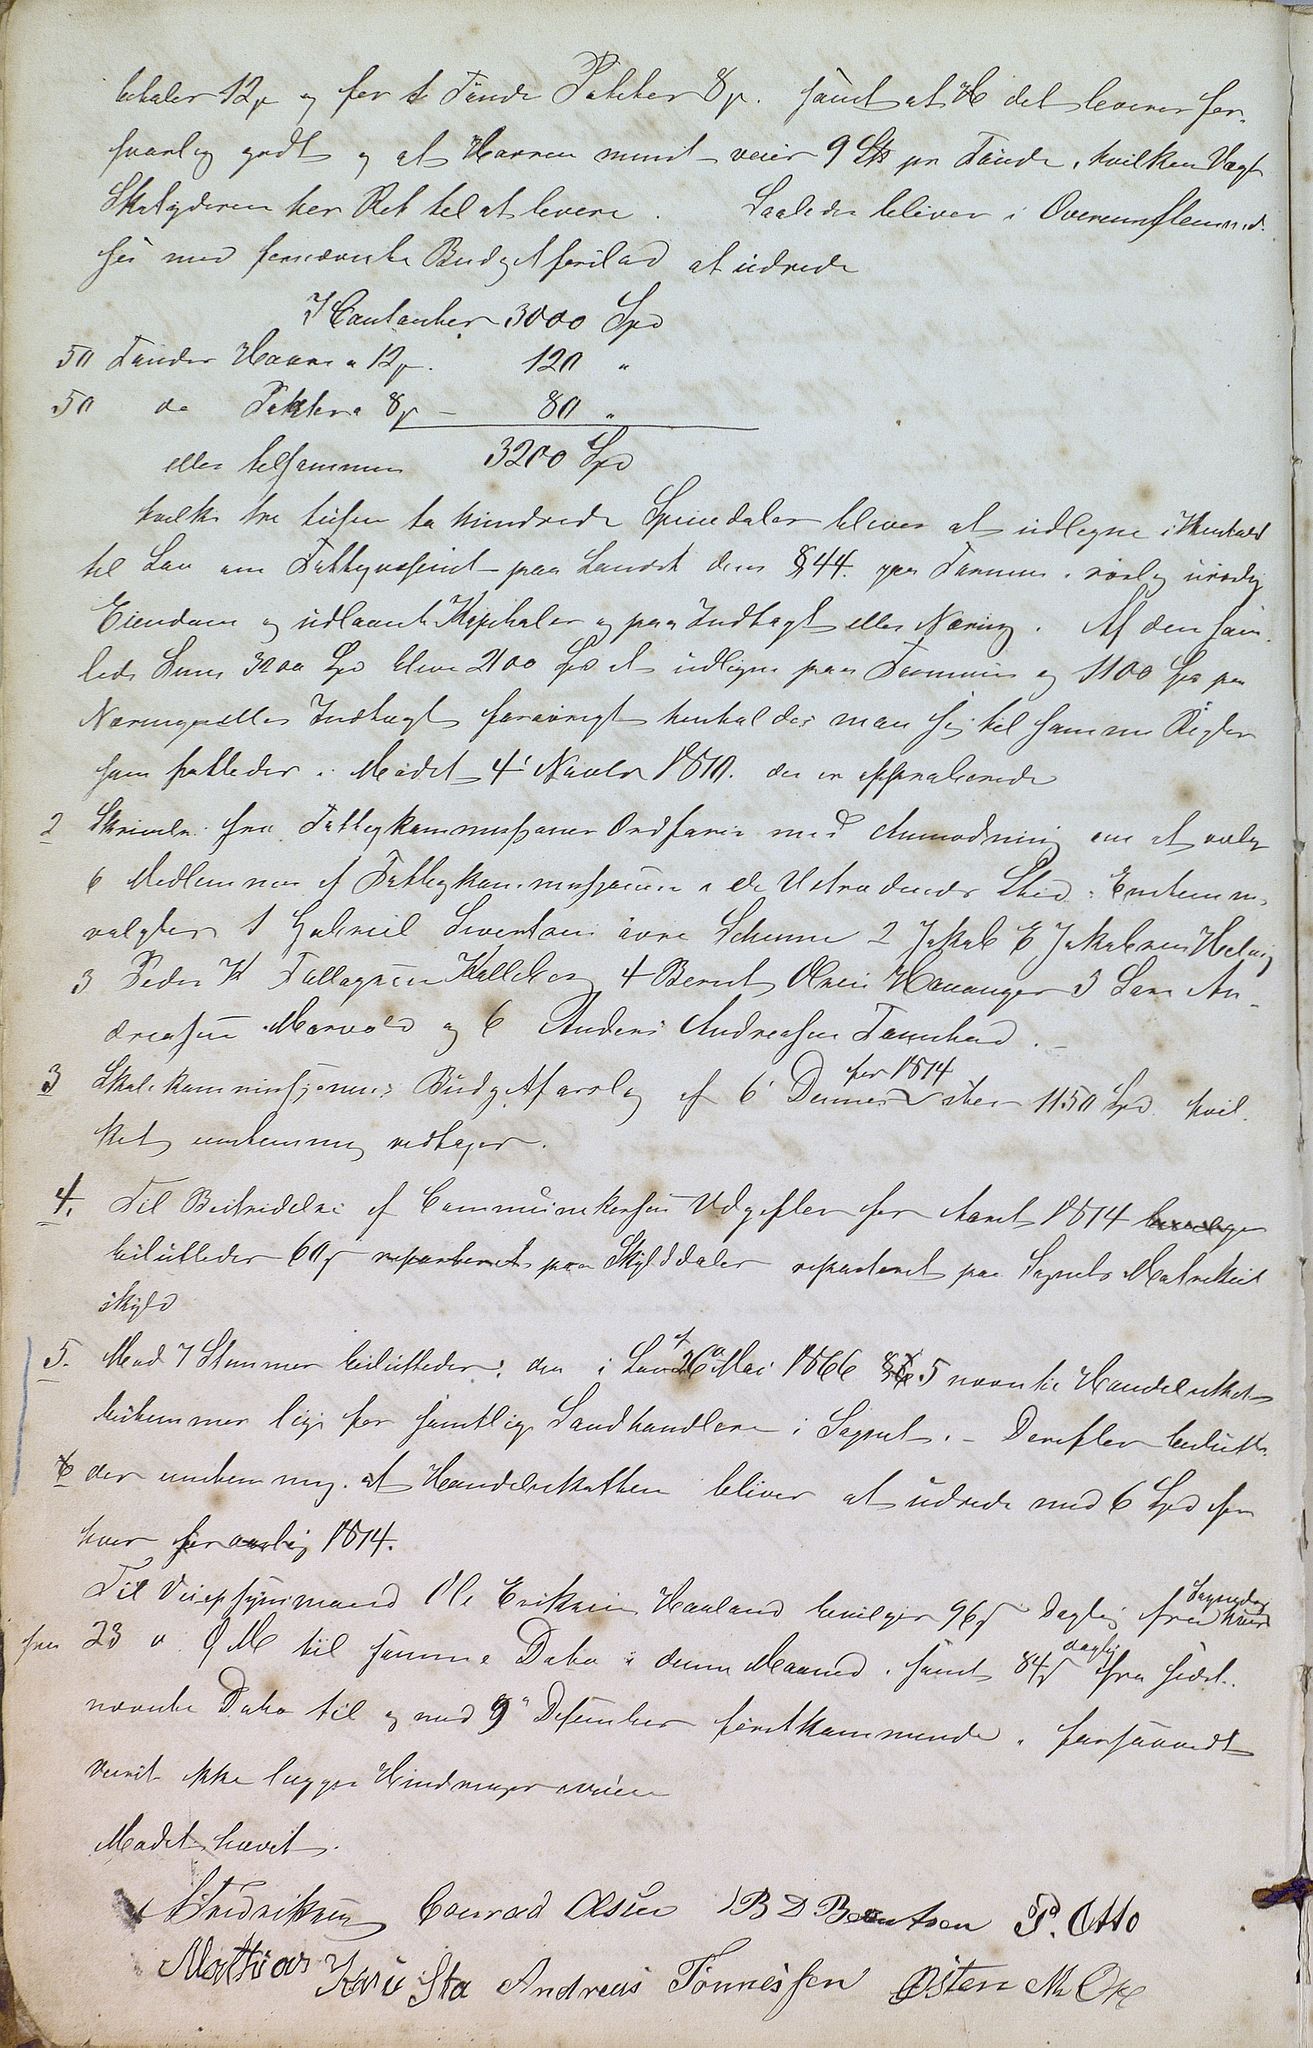 betaler 12ƿ og for 1 Tønde Poteter 8ƿ. samt at det leveres for-
svarlig godt og at Havren mindst veier 9 L℔ pr Tønde, hvilken Vægt
Skatyderen har Ret til at levere. Saaledes bliver i Overensstemmel-
se med fornævnte Budgetforslag at udrede
I Contanter 3000 Spd
50 Tønder Havre a 12ƿ. 120 "
50 do Poteter a 8ƿ - 80 "
eller tilsammen 3200 Spd
hvilke tre tusen to hundrede Speciedaler bliver at udlegne i Henhold
til Lov om Fattigvæsenet paa Landet dens § 44. paa Formue, rørlig urørlig
Eiendom og udlaante Kapitaler og paa Indtægt eller Næring. Af den sam-
lede Sum 3200 Spd blive 2100 Spd at udlegne paa Formuen og 1100 Spd paa
Næring eller Indtægt forøvrigt henholder man sig til samme Regler
som fattedes i Mødet 4' Novbr 1870. der er approberede
2 Skrivelse fra Fattigkommissionens Ordfører med Anmodning om at vælge
6 Medlemmer af Fattigkommissionen i de Udtrædendes Sted. Enstemmig
valgtes 1 Gabriel Sivertsen øvre 2 Jakob E Jakobsen
3 Peder K Tallagsen 4 Bernt Olsen Hananger 5 Lars An-
dreassen og 6 Anders Andreassen
3 Skolekommissionens Budgetforslag af 6' Dennes for 1874 stor 1150 Spd hvil-
ket enstemmig vedtages.
4. Til Bestridelse af Communekassens Udgifter for Aaret 1874
besluttedes 60 paa Skylddaler reparteret paa Sognets Matrikul
skyld
5. Med 7 Stemmer besluttedes: den i Lov af 26 Mai 1866 § 5 nævnte Handelsskat
bestemmes lige for samtlige Landhandlere i Sognet. - Derefter beslutte-
6 des enstemmig at Handelsskatten bliver at udrede med 6 Spd for
hver for 1874.
Til Veiopsynsmand Ole Eriksen Haaland bevilges 96 Daglig
fra 23 d. M. til samme Dato i denne Maaned, samt 84 daglig fra sidst-
nævnte Dato til og med 9' Desember førstkommende, forsaavidt
veiret ikke lægger Hindringer iveien
Mødet hævet.
Fredriksen Conrad Olsen B D Berntsen P. Otto
Mathias Andreas Tønnessen Østen M Ore